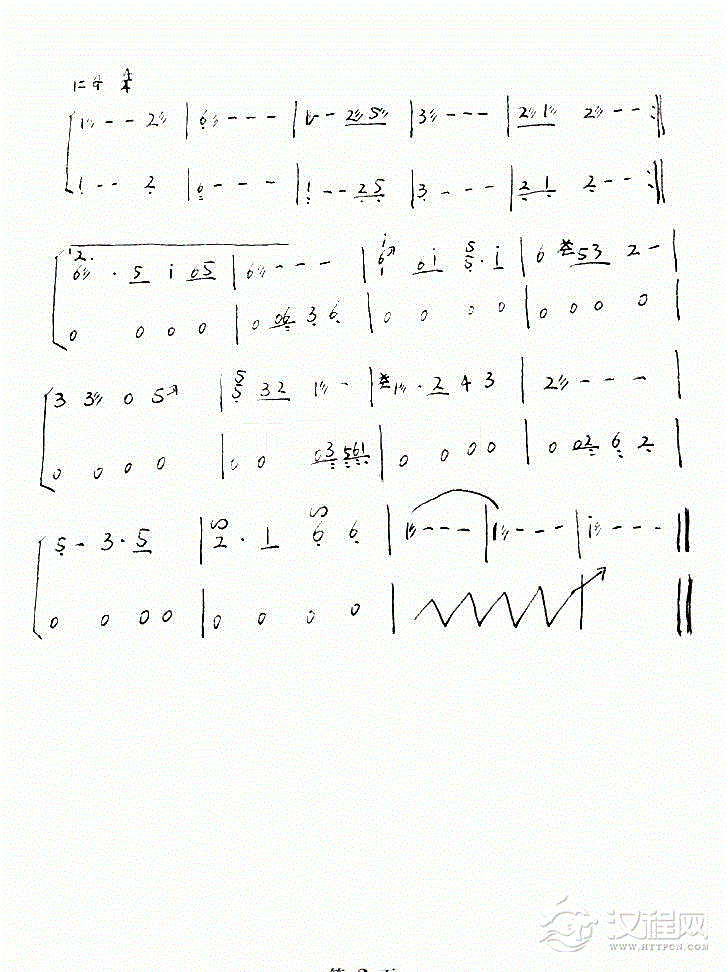 1 - - 2 | 6 - - - | 1 - - 2 5 | 3 - - - | 2 1 2 - - :||
1 - - 2 | 6 - - - | 1 - - 2 5 | 3 - - - | 2 1 2 - - :||
1 2.
6 · 5 i 6 5 | 6 - - - | 6 6 i 5 · i | 6 5 3 2 - |
0 0 0 0 | 0 0 6 3 6 | 0 0 0 0 | 0 0 0 0 |
3 3 0 5 | 5 3 2 1 - | 1 · 2 4 3 | 2 - - - |
0 0 0 0 | 0 0 0 3 5 6 1 | 0 0 0 0 | 0 0 2 6 2 |
5 - 3 · 5 | 2 · 1 6 6 | 1 - - - | 1 - - - | i - - - ||
0 0 0 0 | 0 0 0 0 |
汉程网
WWW.HTTPCN.COM